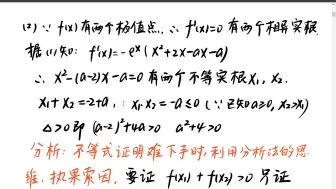 (2) ∵ f(x)有两个极值点, ∴ f'(x)=0 有两个相异实根.
据(1)知: f'(x)=-eˣ(x²+2x-ax-a)
∴ x²-(a-2)x-a=0 有两个不等实根x₁, x₂.
x₁+x₂=-2+a, x₁·x₂=-a≤0 (∵已知a≥0, x₂>x₁)
△>0即 (a-2)²+4a>0 a²+4>0
分析: 不等式证明难下手时, 利用分析法的思
维: 执果索因, 要证 f(x₁)+f(x₂)>0 只证